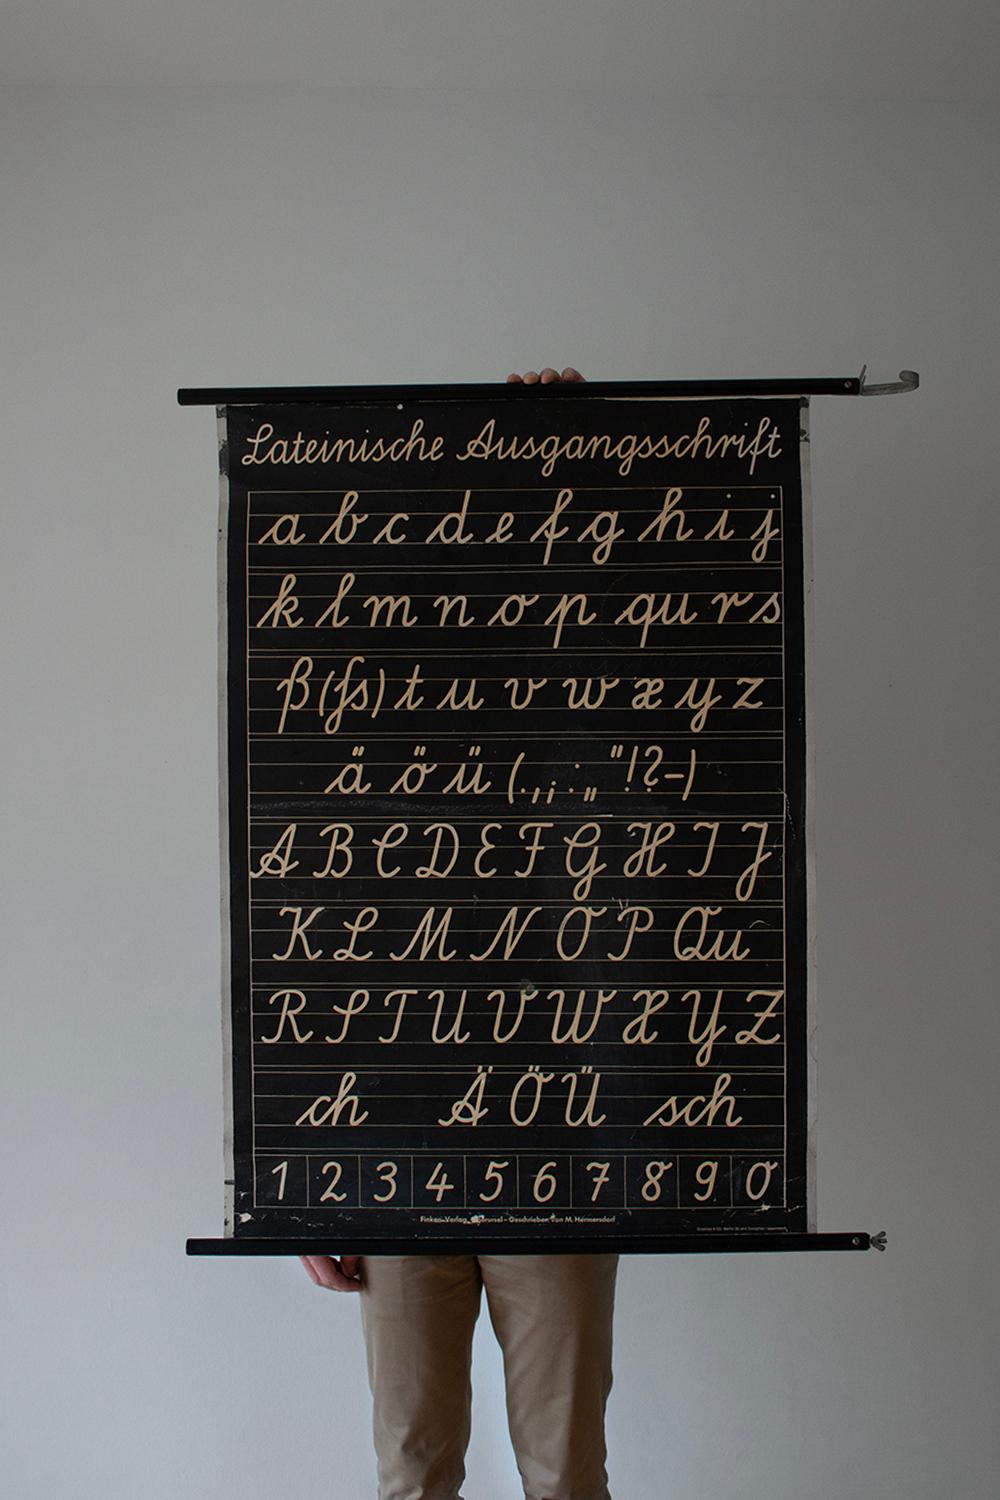 Lateinische Ausgangsschrift
a b c d e f g h i j
k l m n o p qu r s
ß (ſs) t u v w x y z
ä ö ü (. , ; : · „ " ! ? -)
A B C D E F G H I J
K L M N O P Qu
R S T U V W X Y Z
ch Ä Ö Ü sch
1 2 3 4 5 6 7 8 9 0
Finken-Verlag, - Geschrieben von M. Hermersdorf